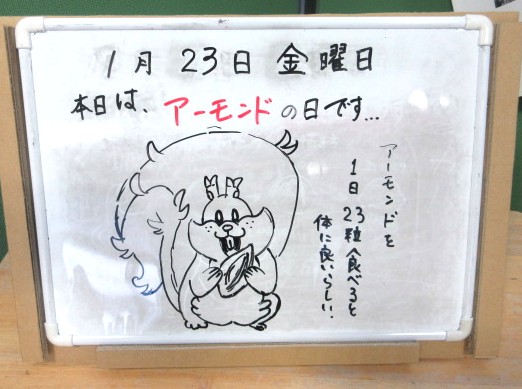 1月23日金曜日
本日は、アーモンドの日です…
アーモンドを
1日23粒食べると
体に良いらしい。